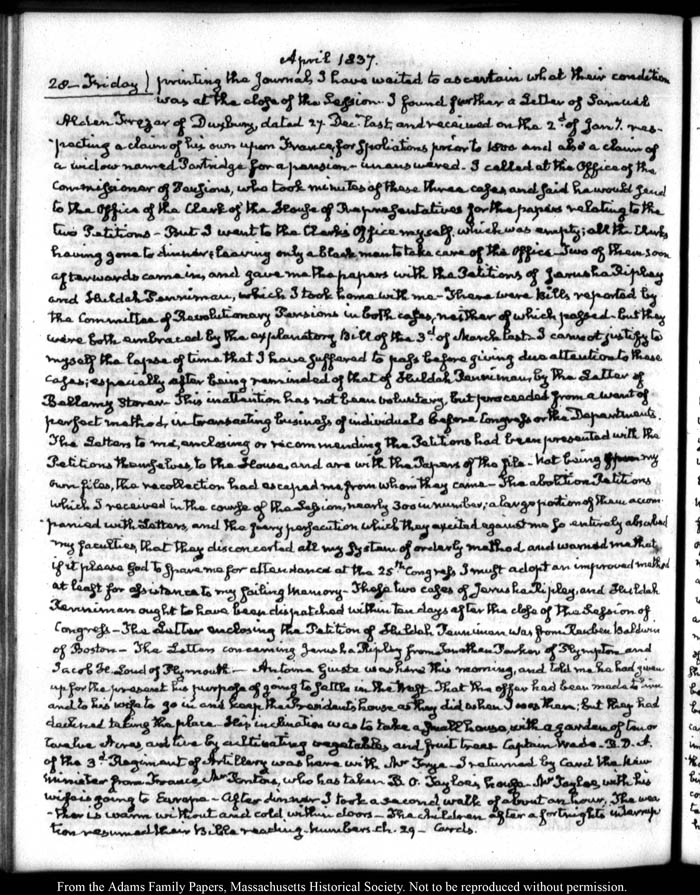 April 1837.
28 - Friday) printing the Journal, I have waited to ascertain what their condition
was at the close of the Session. I found further a Letter of Samuel
Alden Frazar of Duxbury, dated 27. Decr. last, and received on the 2d. of Jany. res-
-pecting a claim of his own upon France, for Spoliations prior to 1800 and also a claim of
a widow named Partridge for a pension - unanswered. I called at the Office of the
Commissioner of Pensions, who took minutes of these three cases, and said he would send
to the Office of the Clerk of the House of Representatives for the papers relating to the
two Petitions - But I went to the Clerk's Office myself, which was empty; all the Clerks
having gone to dinner; leaving only a black man to take care of the Office - Two of them soon
afterwards came in, and gave me the papers with the Petitions of Jerusha Ripley
and Huldah Penniman, which I took home with me - There were Bills reported by
the Committee of Revolutionary Pensions in both cases, neither of which passed - but they
were both embraced by the explanatory Bill of the 3d. of March last. I cannot justify to
myself the lapse of time that I have suffered to pass before giving due attention to these
cases; especially after being reminded of that of Huldah Penniman, by the Letter of
Bellamy Storer - This inattention has not been voluntary, but proceeded from a want of
perfect method, in transacting business of individuals before Congress or the Departments.
The Letters to me, enclosing or recommending the Petitions had been presented with the
Petitions themselves, to the House, and are with the Papers of the file - Not being upon my
own files, the recollection had escaped me, from whom they came - The abolition Petitions
which I received in the course of the Session, nearly 300 in number, a large portion of them accom-
-panied with Letters, and the fiery persecution which they excited against me so entirely absorbed
my faculties, that they disconcerted all my System of orderly method, and warned me that
if it please God to spare me for attendance at the 25th. Congress I must adopt an improved method
at least for assistance to my failing memory - These two cases of Jerusha Ripley, and Huldah
Penniman ought to have been dispatched within ten days after the close of the Session of
Congress - The Letter enclosing the Petition of Huldah Penniman was from Reuben Baldwin
of Boston - The Letters concerning Jerusha Ripley from Jonathan Parker of Plympton and
Jacob H. Loud of Plymouth - Antoine Giusta was here this morning, and told me he had given
up for the present his purpose of going to settle in the West. That the offer had been made to him
and to his wife to go in and keep the President's house as they did when I was there; but they had
declined taking the place. His inclination was to take a small house, with a garden of ten or
twelve Acres, and live by cultivating vegetables and fruit trees. Captain Wade. B. D. A.
of the 3d. Regiment of Artillery was here with Mr. Frye - I returned by Card the new
Minister from France Mr. Pontois, who has taken B. O. Tayloe's house. Mr Tayloe, with his
wife is going to Europe - After dinner I took a second walk of about an hour, The wea-
-ther is warm without and cold within doors - The children after a fortnight's interrup-
tion resumed their Bible reading. Numbers. ch. 29 - Cards.
From the Adams Family Papers, Massachusetts Historical Society. Not to be reproduced without permission.